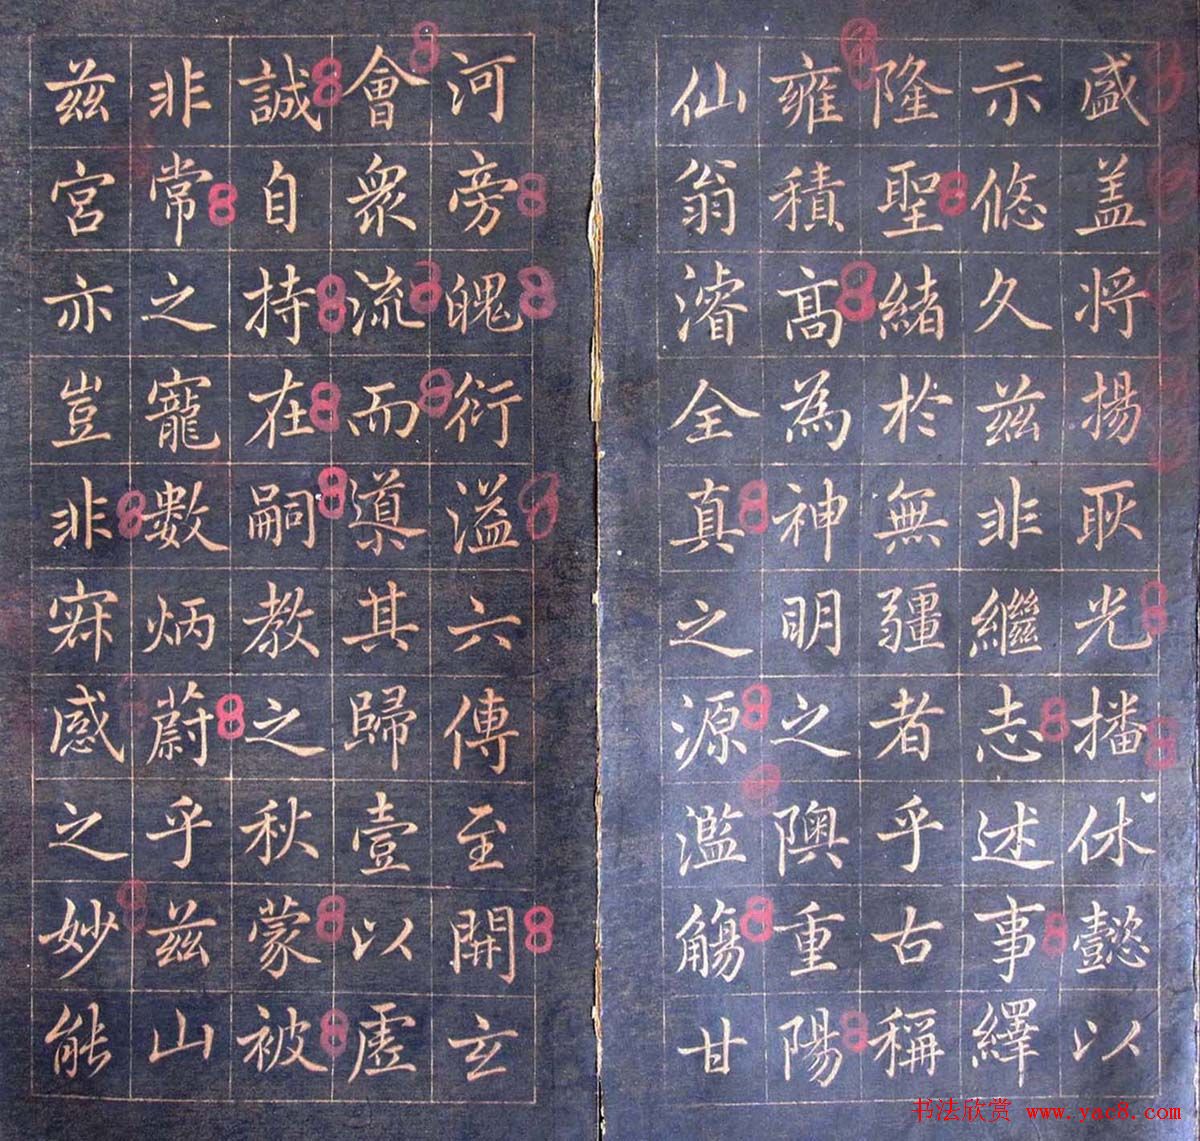 盛盖将揚耿光播休懿以
示悠久兹非繼志述事繹
隆聖緒於無疆者乎古稱
雍積高為神明之隩重陽
仙翁濬全真之源濫觴甘
河旁魄衍溢六傳至開玄
會衆流而導其歸壹以虛
誠自持在嗣教之秋蒙被
非常之寵數炳蔚乎兹山
兹宮亦豈非寂感之妙能
书法欣赏 www.yac8.com